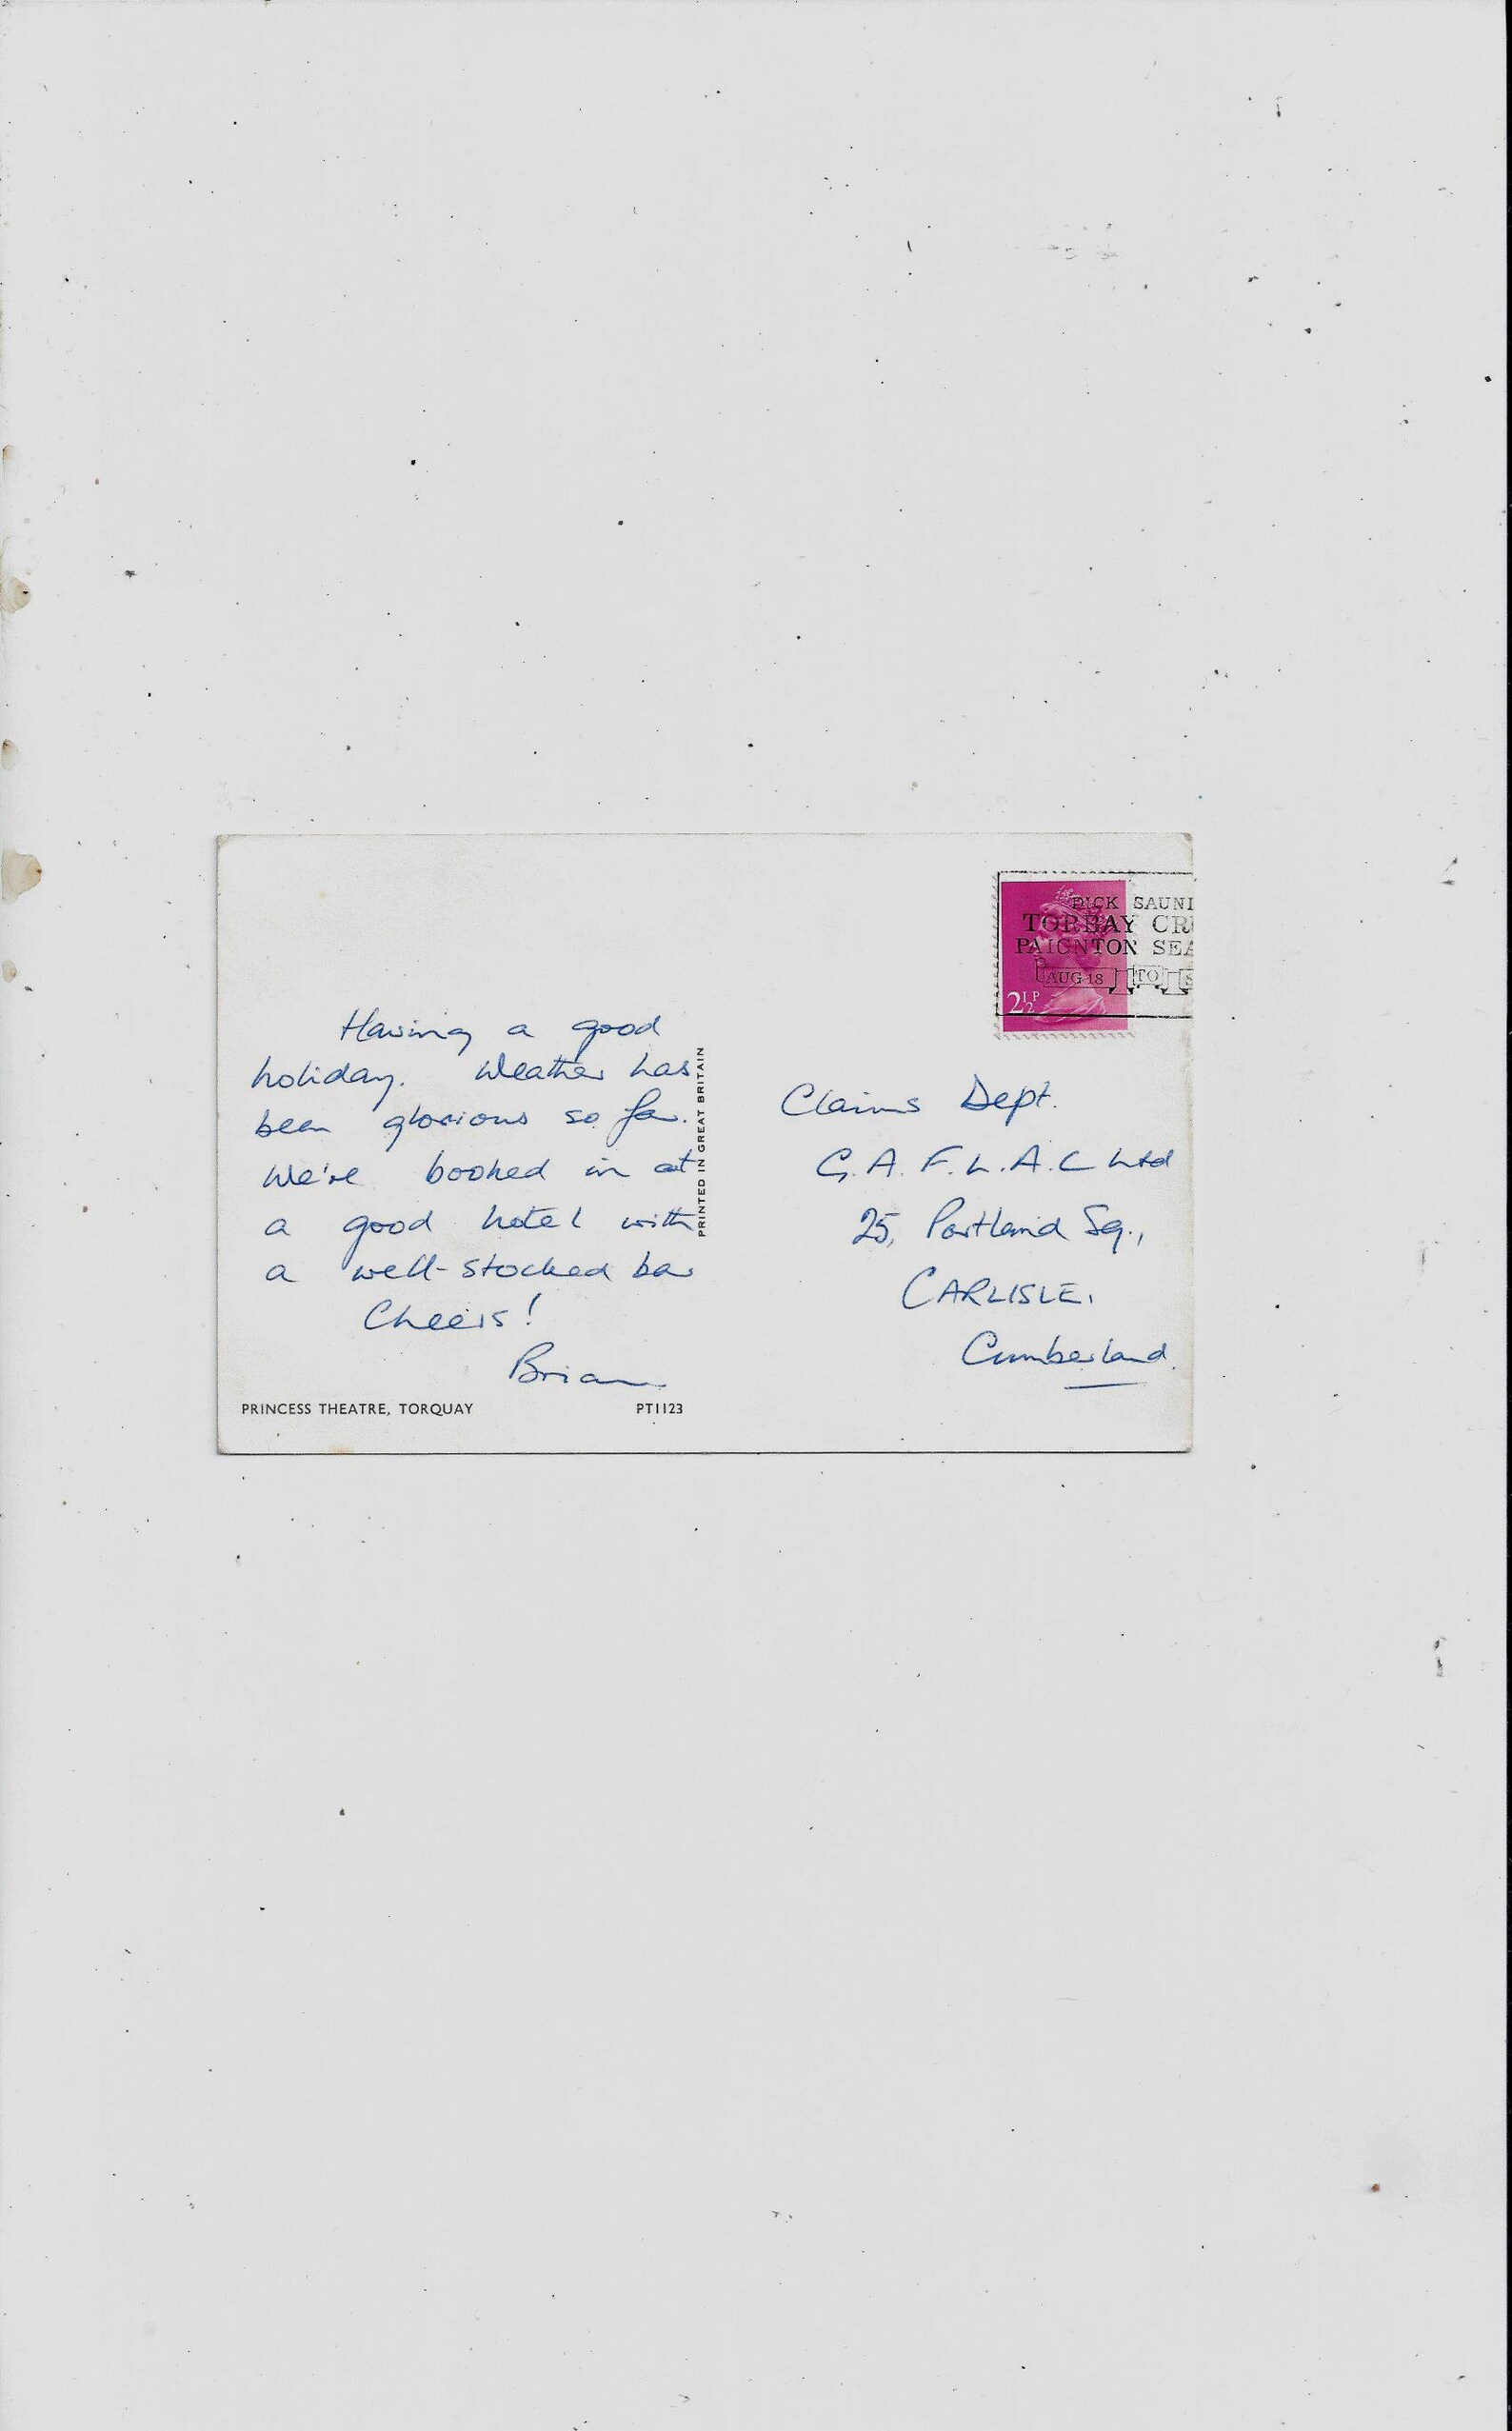 DICK SAUN
TORBAY CR
PAIGNTON SEA
AUG 18 TO S
2½P
Having a good
holiday. Weather has
been glorious so far.
We're booked in at
a good hotel with
a well-stocked bar
Cheers!
Brian
PRINTED IN GREAT BRITAIN
Claims Dept.
G.A.F.L.A.C Ltd
25, Portland Sq.,
CARLISLE.
Cumberland.
PRINCESS THEATRE, TORQUAY PT1123